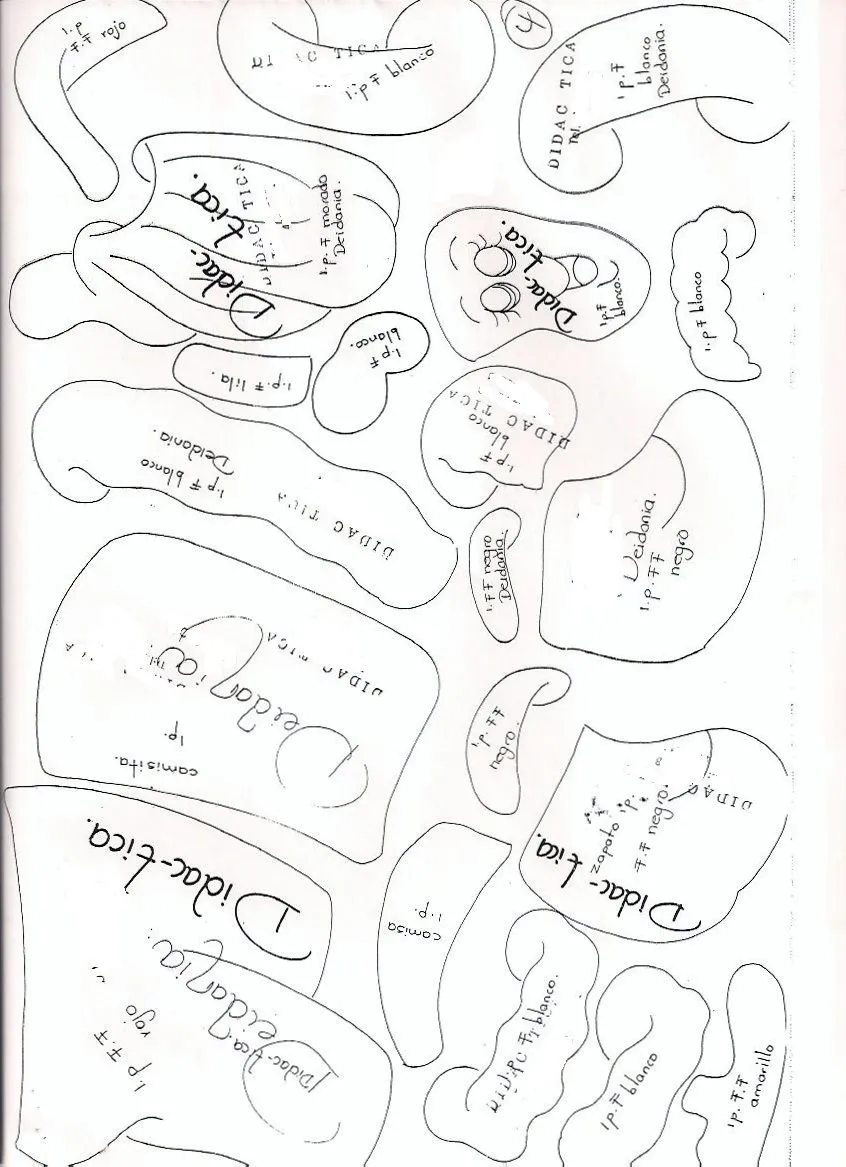 1.p
F.F rojo
1.p F blanco
4
DIDAC TICA
1p.F
blanco
Deidania.
Didac-tica.
DIDAC TICA
1.p. F morado
Deidania.
Didac-tica.
1p.F
blanco.
1.p F blanco
1.p F
blanco.
1.p. F lila.
DIDAC TICA
1.p F
blanco
1.p F blanco
Deidania.
DIDAC TICA
Deidania.
1.p. FF
negro
1.FF negro
Deidania.
DIDAC TICA
Deidania
1p.
camisita.
1.p. FF
negro.
DIDAC
zapato 1p.
F.F negro.
Didac-tica.
camisa
1.p.
Didac-tica.
Deidania.
Didac-tica.
1.p F.F
rojo
blanco.
1p F blanco
1p. F.F
amarillo